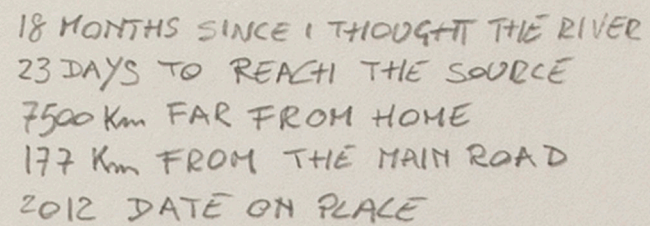 18 MONTHS SINCE I THOUGHT THE RIVER
23 DAYS TO REACH THE SOURCE
7500 Km FAR FROM HOME
177 Km FROM THE MAIN ROAD
2012 DATE ON PLACE